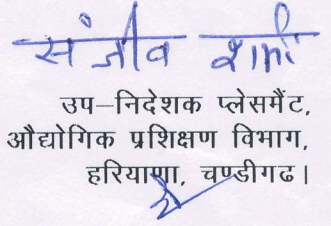 संजीव शर्मा
उप–निदेशक प्लेसमैंट,
औद्योगिक प्रशिक्षण विभाग,
हरियाणा, चण्डीगढ।